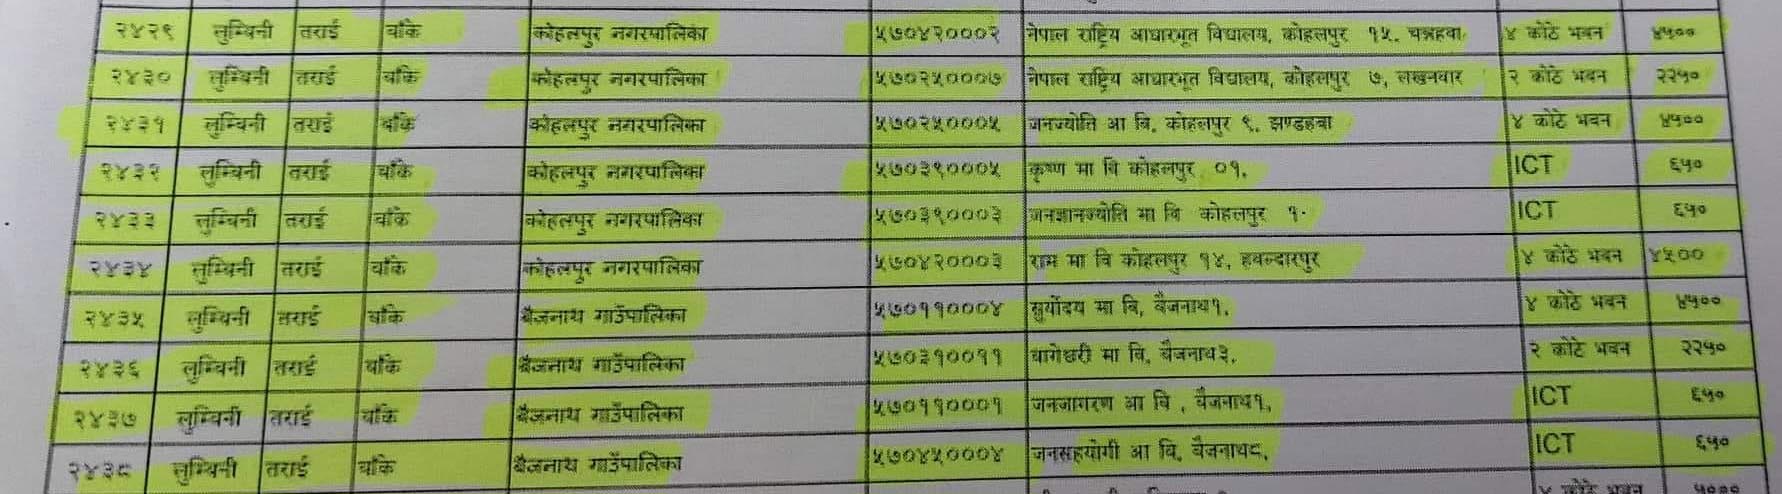 २४२९ लुम्बिनी तराई बाँके कोहलपुर नगरपालिका ५७०४२०००२ नेपाल राष्ट्रिय आधारभूत विद्यालय, कोहलपुर १५. चन्नहवा ४ कोठे भवन ४५००
२४३० लुम्बिनी तराई बाँके कोहलपुर नगरपालिका ५७०२५०००७ नेपाल राष्ट्रिय आधारभूत विद्यालय, कोहलपुर ७, लखनवार २ कोठे भवन २२५०
२४३१ लुम्बिनी तराई बाँके कोहलपुर नगरपालिका ५७०२५०००५ जनज्योति आ वि, कोहलपुर ९. झण्डहवा ४ कोठे भवन ४५००
२४३२ लुम्बिनी तराई बाँके कोहलपुर नगरपालिका ५७०३९०००५ कृष्ण मा वि कोहलपुर ०१. ICT ६५०
२४३३ लुम्बिनी तराई बाँके कोहलपुर नगरपालिका ५७०३९०००३ जनज्ञानज्योति मा वि कोहलपुर १. ICT ६५०
२४३४ लुम्बिनी तराई बाँके कोहलपुर नगरपालिका ५७०४२०००३ राम मा वि कोहलपुर १४, हवल्दारपुर ४ कोठे भवन ४५००
२४३५ लुम्बिनी तराई बाँके बैजनाथ गाउँपालिका ५७०११०००४ सुर्योदय मा वि, बैजनाथ१. ४ कोठे भवन ४५००
२४३६ लुम्बिनी तराई बाँके बैजनाथ गाउँपालिका ५७०३१००११ बागेश्वरी मा वि, बैजनाथ३. २ कोठे भवन २२५०
२४३७ लुम्बिनी तराई बाँके बैजनाथ गाउँपालिका ५७०११०००१ जनजागरण आ वि , बैजनाथ१, ICT ६५०
२४३८ लुम्बिनी तराई बाँके बैजनाथ गाउँपालिका ५७०४५०००४ जनसहयोगी आ वि, बैजनाथ८, ICT ६५०